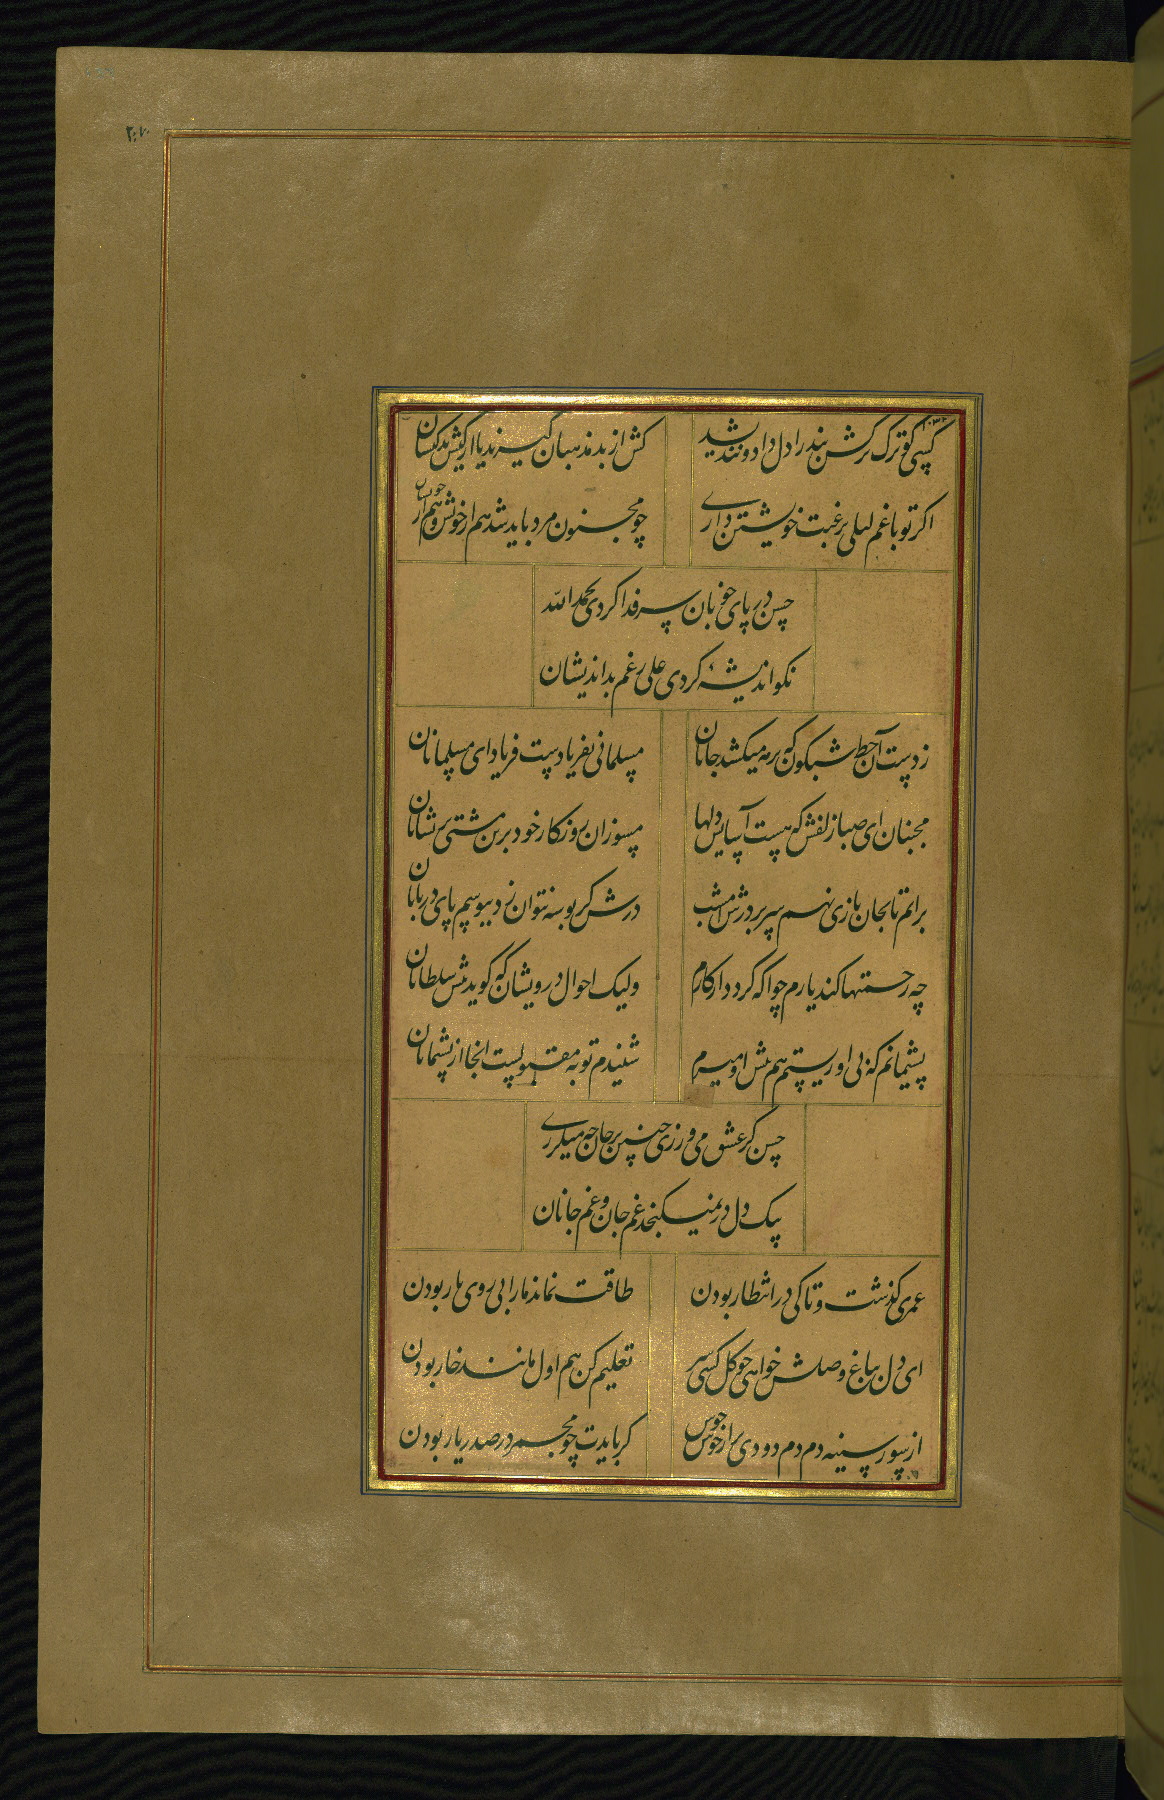 کسی کو ترک ترکش بند را دل داد و نندیشد
کش از بد مذهبان گیرند یا از کیش بدکیشان
اکر تو با غم لیلی برغبت خویشتن داری
چو مجنون مرد باید شد هم از خویش و هم از خویشان
حسن در پای خوبان سر فدا کردی بحمد الله
نکو اندیشهٔ کردی علی رغم بد اندیشان
ز دست آن خط شبکون که برمه میکشد جانان
مسلمانی بفریادست فریاد ای مسلمانان
مجنبان ای صبا زلفش که هست آسایش دلها
مسوزان روزکار خود برین مشتی پریشانان
برانم تا بجان بازی نهم سر بر درش امشب
درش کر بوسه نتوان زد ببوسم پای دربانان
چه رحمتها کند یارم چو اکه کردد از کارم
ولیک احوال درویشان که کوید پیش سلطانان
پشیمانم که بی او زیستم هم پیش او میرم
شنیدم توبه مقبولست انجا از پشیمانان
حسن کر عشق می ورزی چنین بر جان چه میلرزی
بیک دل در نمیکنجد غم جان و غم جانان
عمری کذشت و تا کی در انتظار بودن
طاقت نماند ما را بی روی یار بودن
ای دل بباغ وصلش خواهی چو کل کسی سر
تعلیم کن هم اول مانند خار بودن
از سوز سینه دم دم دودی برار خوش خوش
کر بایدت چو مجمر در صدر یار بودن